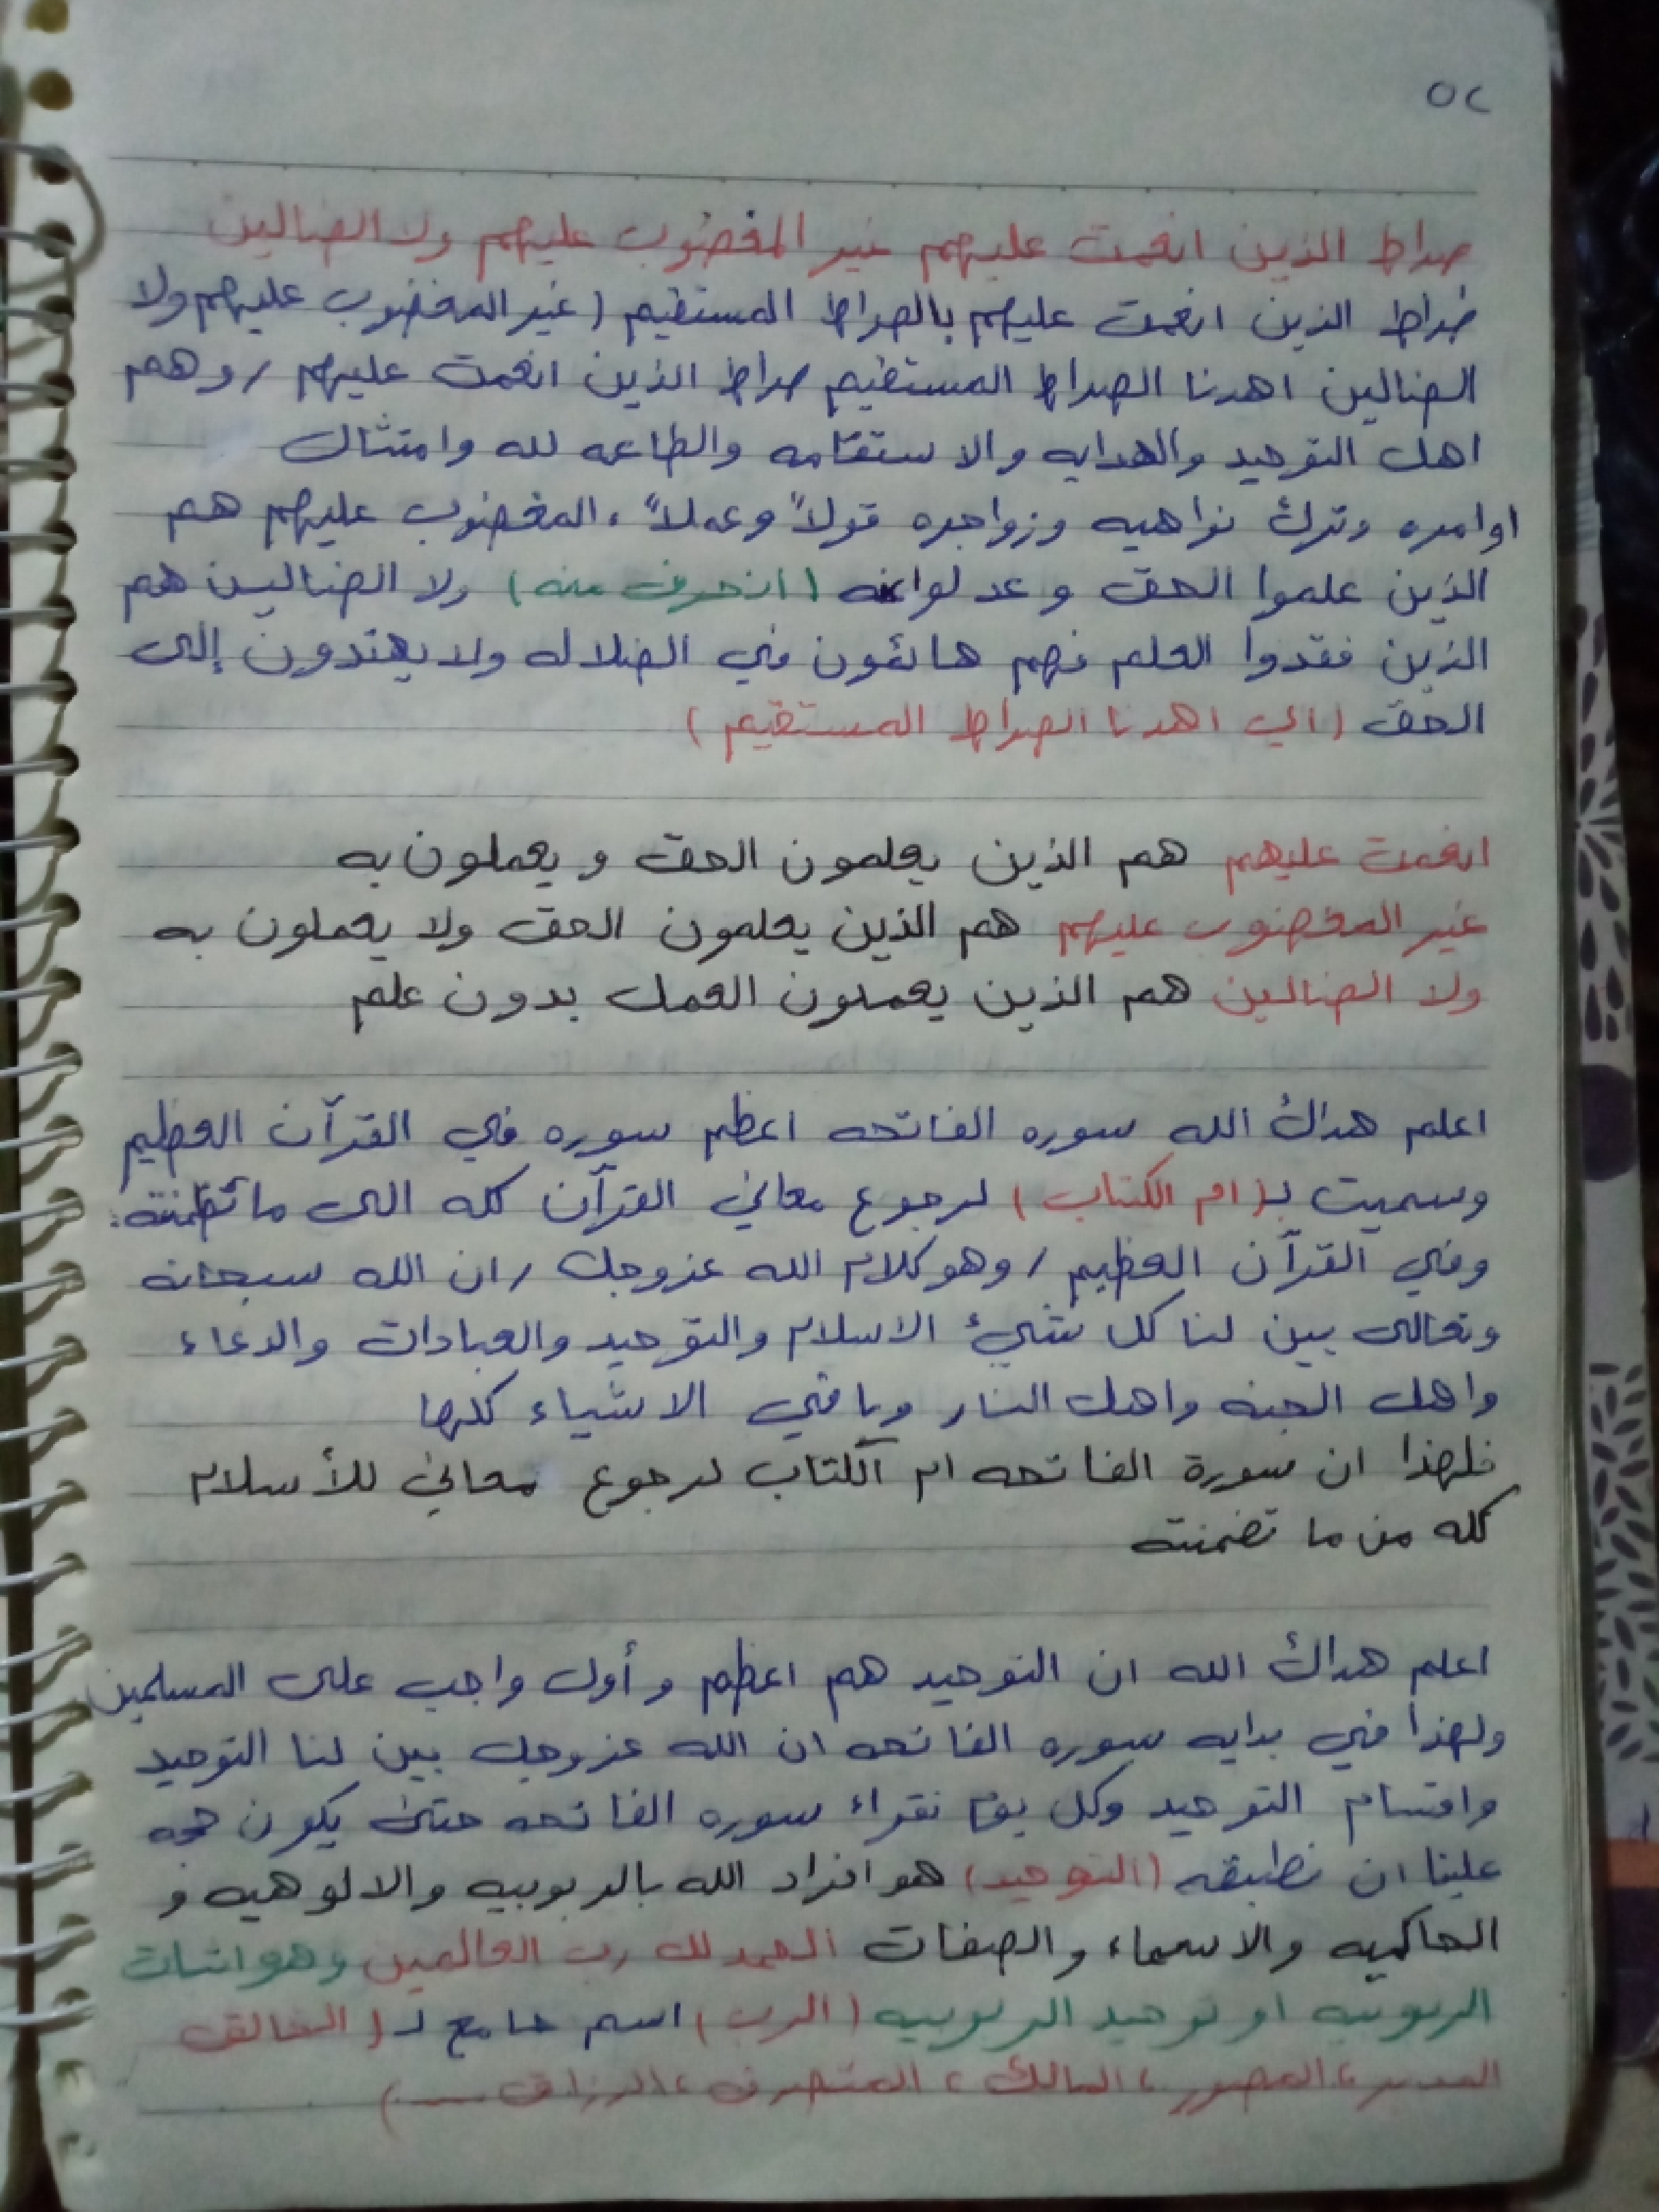 ٥٢
صراط الذين انعمت عليهم غير المغضوب عليهم ولا الضالين
صراط الذين انعمت عليهم بالصراط المستقيم (غير المغضوب عليهم ولا
الضالين اهدنا الصراط المستقيم صراط الذين انعمت عليهم / وهم
اهل التوحيد والهدايه والاستقامه والطاعه لله وامتثال
اوامره وترك نواهيه وزواجره قولاً وعملاً، المغضوب عليهم هم
الذين علموا الحق وعدلوا عنه (انحرف منه) ولا الضالين هم
الذين فقدوا العلم فهم هائمون في الضلاله ولا يهتدون إلى
الحق (الي اهدنا الصراط المستقيم)
انعمت عليهم هم الذين يعلمون الحق و يعملون به
غير المغضوب عليهم هم الذين يعلمون الحق ولا يعملون به
ولا الضالين هم الذين يعملون العمل بدون علم
اعلم هداك الله سوره الفاتحه اعظم سوره في القرآن العظيم
وسميت بـ(ام الكتاب) لرجوع معاني القرآن كله الى ما تضمنته:
وفي القرآن العظيم / وهو كلام الله عزوجل / ان الله سبحانه
وتعالى بين لنا كل شيء الاسلام والتوحيد والعبادات والدعاء
واهل الجنه واهل النار وباقي الاشياء كلها
فلهذا ان سورة الفاتحه ام الكتاب لرجوع معاني للأسلام
كله من ما تضمنته
اعلم هداك الله ان التوحيد هم اعظم وأول واجب على المسلمين
ولهذا في بدايه سوره الفاتحه ان الله عزوجل بين لنا التوحيد
واقسام التوحيد وكل يوم نقراء سوره الفاتحه حتى يكون حجه
علينا ان نطبقه (التوحيد) هو افراد الله بالربوبيه والالوهيه و
الحاكميه والاسماء والصفات الحمدلله رب العالمين وهو اثبات
الربوبيه او توحيد الربوبيه (الرب) اسم جامع لـ (الخالق
المدبر، المصور، المالك، المتصرف، الرزاق ...)